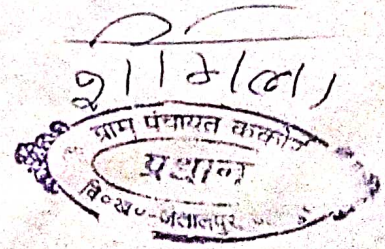 शर्मिला
ग्राम पंचायत ककोर
प्रधान
वि०ख०-जलालपुर